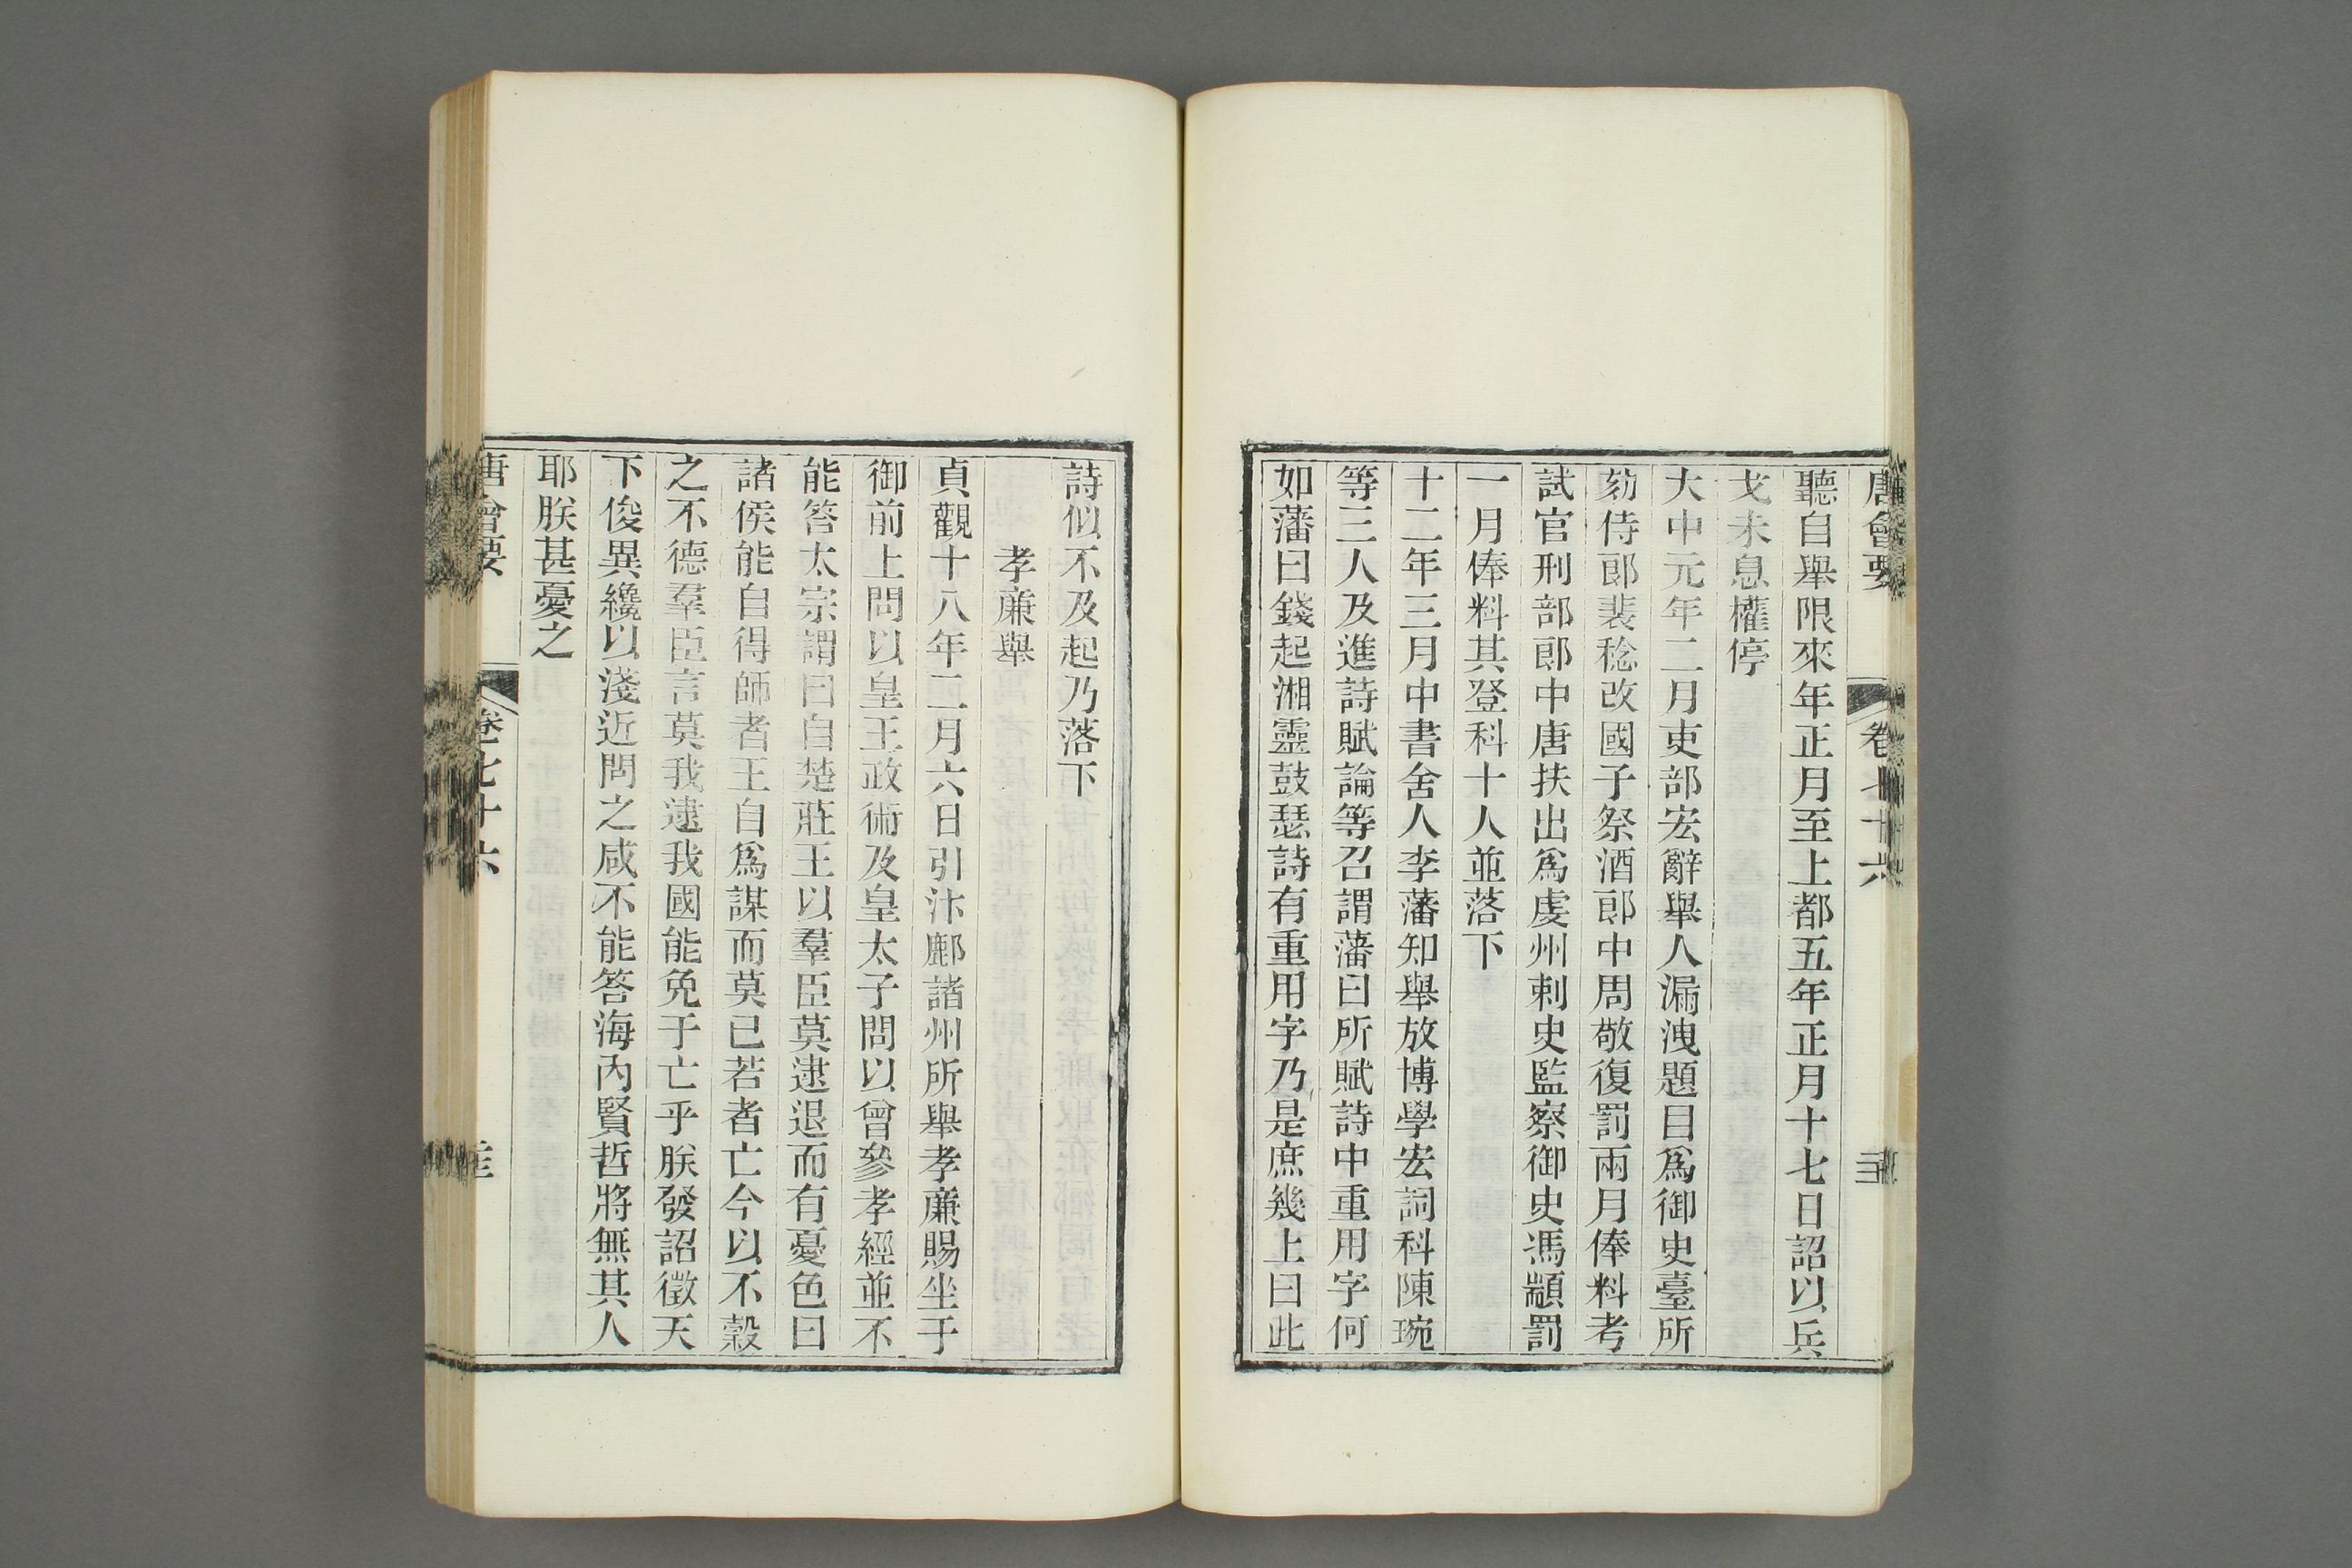 唐會要 卷七十六
聽自舉限來年正月至上都五年正月十七日詔以兵
戈未息權停
大中元年二月吏部宏辭舉人漏洩題目爲御史臺所
劾侍郎裴稔改國子祭酒郎中周敬復罰兩月俸料考
試官刑部郎中唐扶出爲虔州刺史監察御史馮顓罰
一月俸料其登科十人並落下
十二年三月中書舍人李藩知舉放博學宏詞科陳琬
等三人及進詩賦論等召謂藩曰所賦詩中重用字何
如藩曰錢起湘靈鼓瑟詩有重用字乃是庶幾上曰此
詩似不及起乃落下
孝廉舉
貞觀十八年二月六日引汴鄜諸州所舉孝廉賜坐于
御前上問以皇王政術及皇太子問以曾參孝經並不
能答太宗謂曰自楚莊王以羣臣莫逮退而有憂色曰
諸侯能自得師者王自爲謀而莫己若者亡今以不穀
之不德羣臣言莫我逮我國能免于亡乎朕發詔徵天
下俊異纔以淺近問之咸不能答海內賢哲將無其人
耶朕甚憂之
唐會要 卷七十六